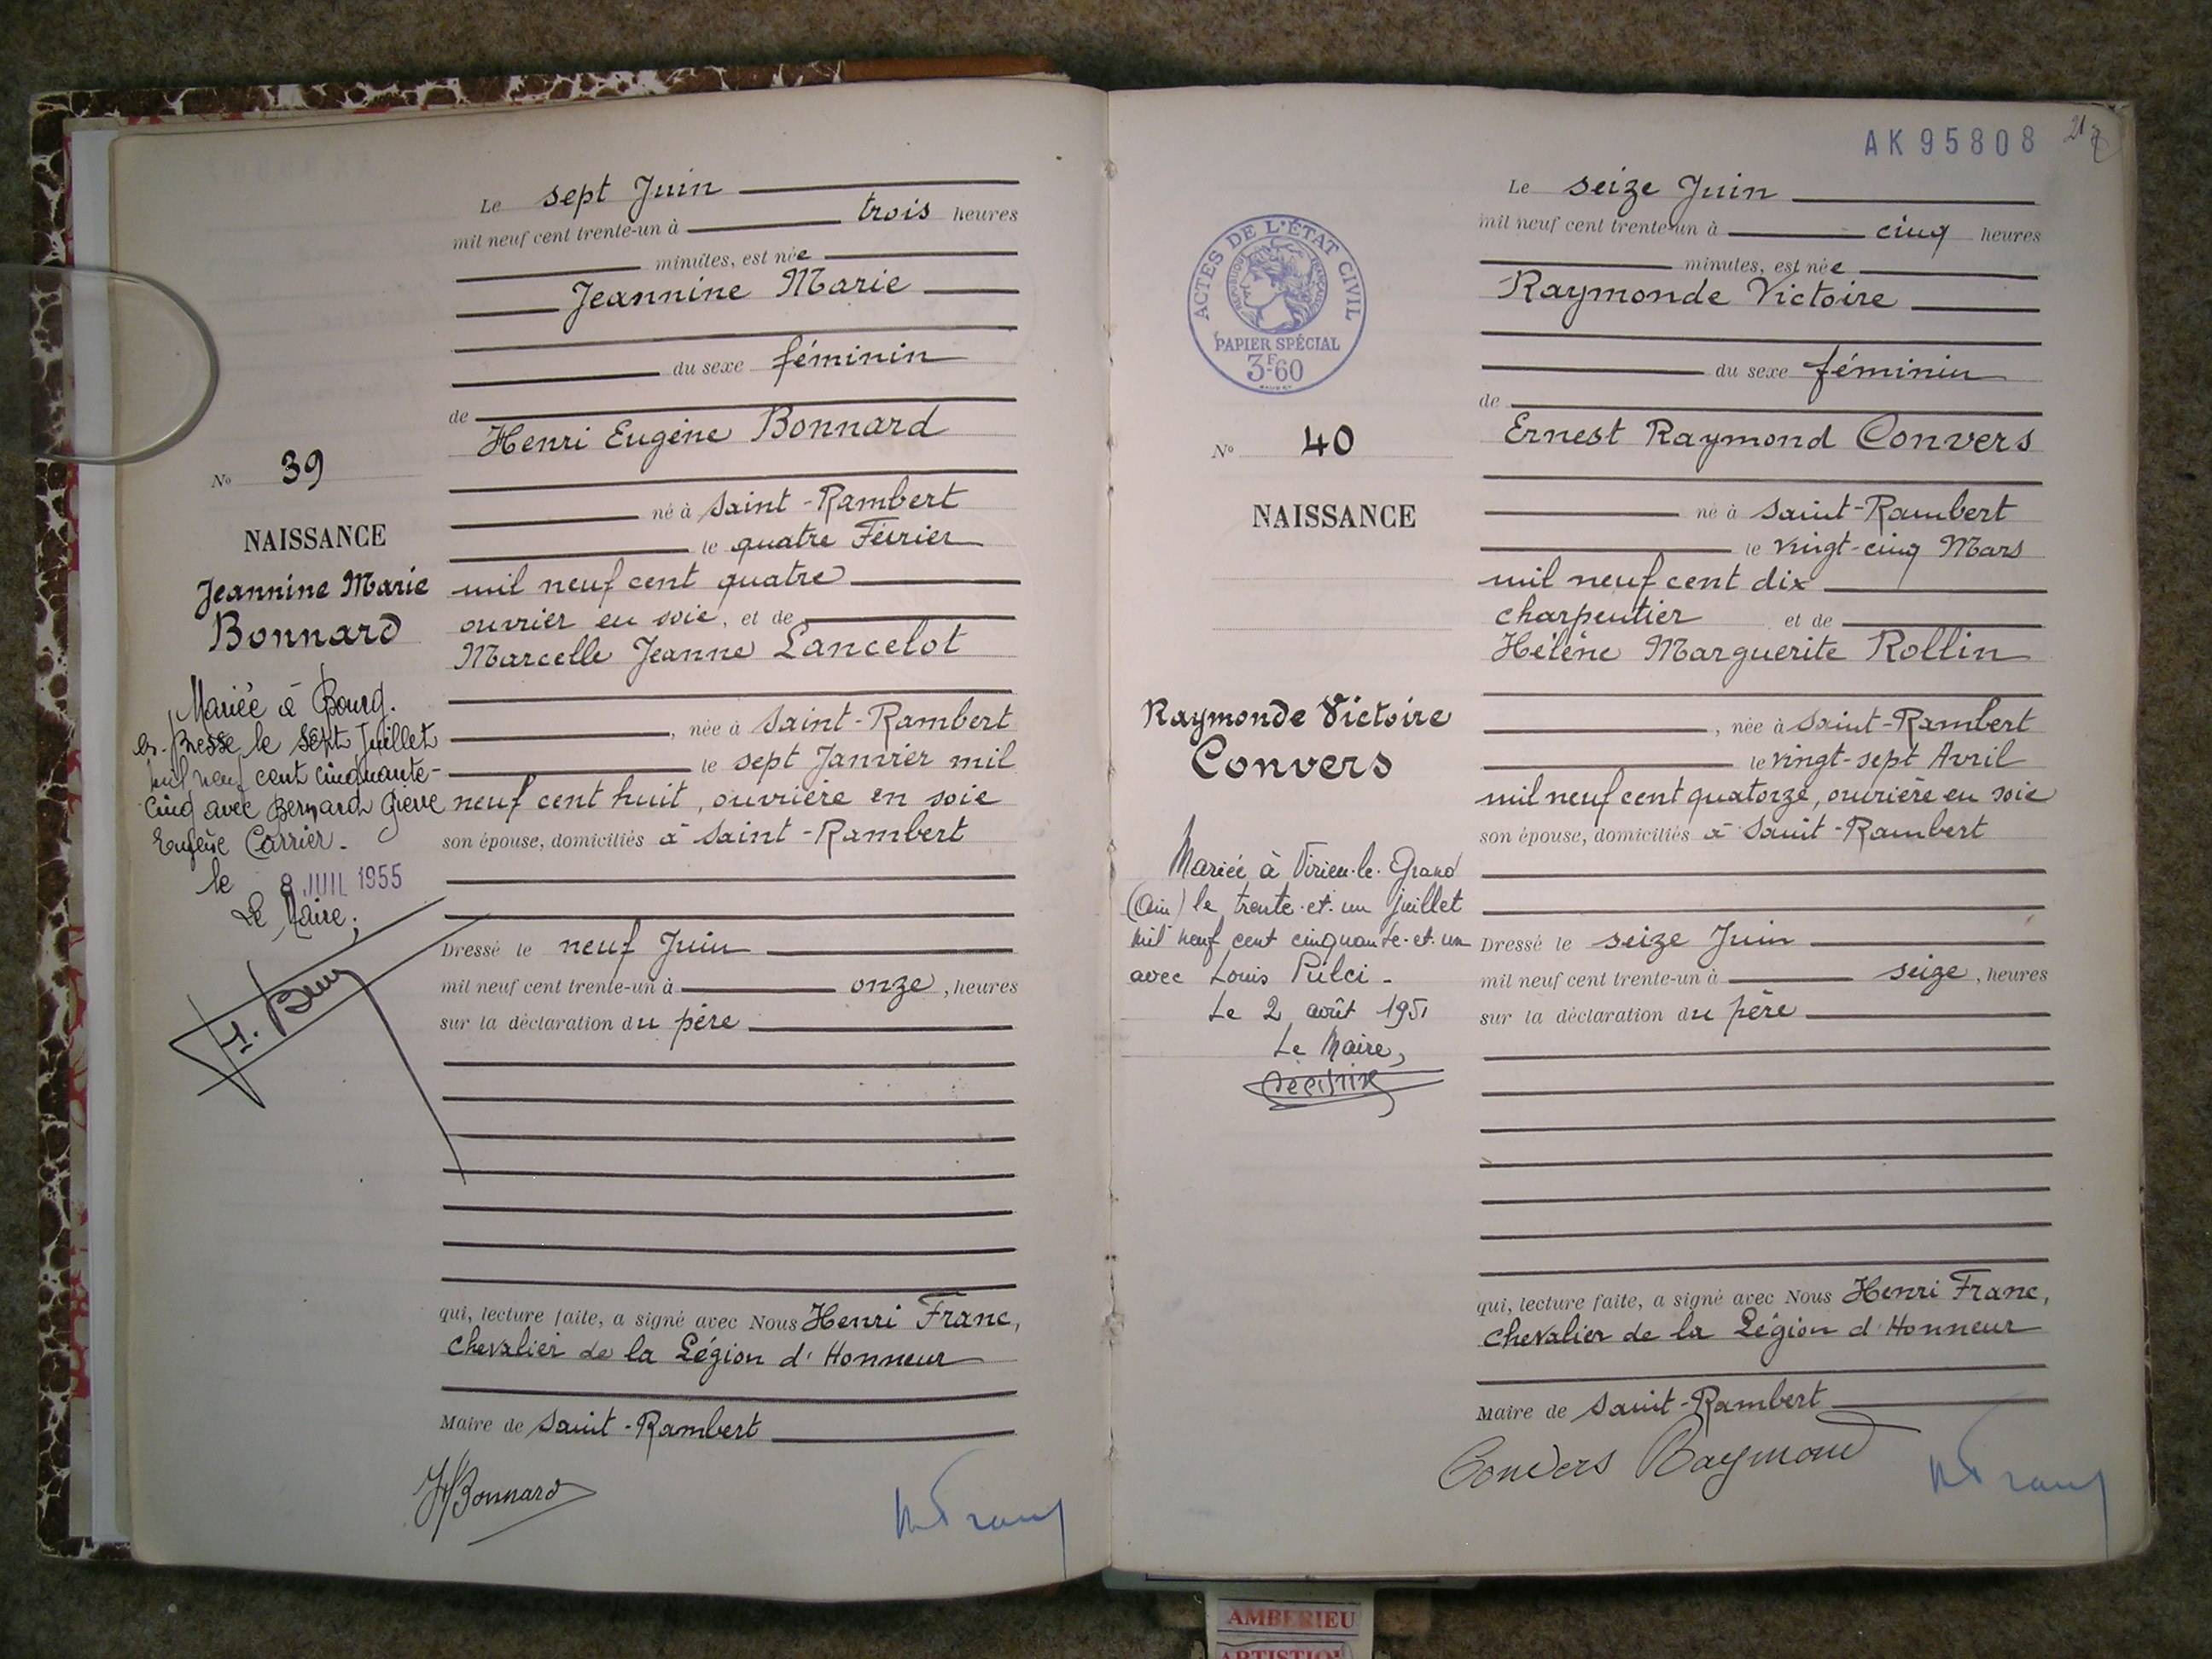 Le sept Juin
mil neuf cent trente-un à trois heures
minutes, est née
Jeannine Marie
du sexe féminin
de
Henri Eugène Bonnard
né à Saint-Rambert
le quatre Février
mil neuf cent quatre
ouvrier en soie, et de
Marcelle Jeanne Lancelot
, née à Saint-Rambert
le sept Janvier mil
neuf cent huit, ouvrière en soie
son épouse, domiciliés à Saint-Rambert
Dressé le neuf Juin
mil neuf cent trente-un à onze, heures
sur la déclaration du père
qui, lecture faite, a signé avec Nous Henri Franc,
chevalier de la Légion d'Honneur
Maire de Saint-Rambert
HBonnard
Franc
No 39
NAISSANCE
Jeannine Marie
Bonnard
Mariée à Bourg-
en-Bresse le sept Juillet
mil neuf cent cinquante-
cinq avec Bernard
Eugène Carrier.
le 8 JUIL 1955
Le Maire,
AK95808
21
Le seize Juin
mil neuf cent trente-un à cinq heures
minutes, est née
Raymonde Victoire
du sexe féminin
de
Ernest Raymond Convers
né à Saint-Rambert
le vingt-cinq Mars
mil neuf cent dix
charpentier et de
Hélène Marguerite Rollin
, née à Saint-Rambert
le vingt-sept Avril
mil neuf cent quatorze, ouvrière en soie
son épouse, domiciliés à Saint-Rambert
Dressé le seize Juin
mil neuf cent trente-un à seize, heures
sur la déclaration du père
qui, lecture faite, a signé avec Nous Henri Franc,
chevalier de la Légion d'Honneur
Maire de Saint-Rambert
Convers Raymond
Franc
ACTES DE L'ÉTAT CIVIL
RÉPUBLIQUE FRANÇAISE
PAPIER SPÉCIAL
3F60
No 40
NAISSANCE
Raymonde Victoire
Convers
Mariée à Virieu-le-Grand
(Ain) le trente-et-un juillet
mil neuf cent cinquante-et-un
avec Louis Pulci -
Le 2 août 1951
Le Maire,
AMBERIEU